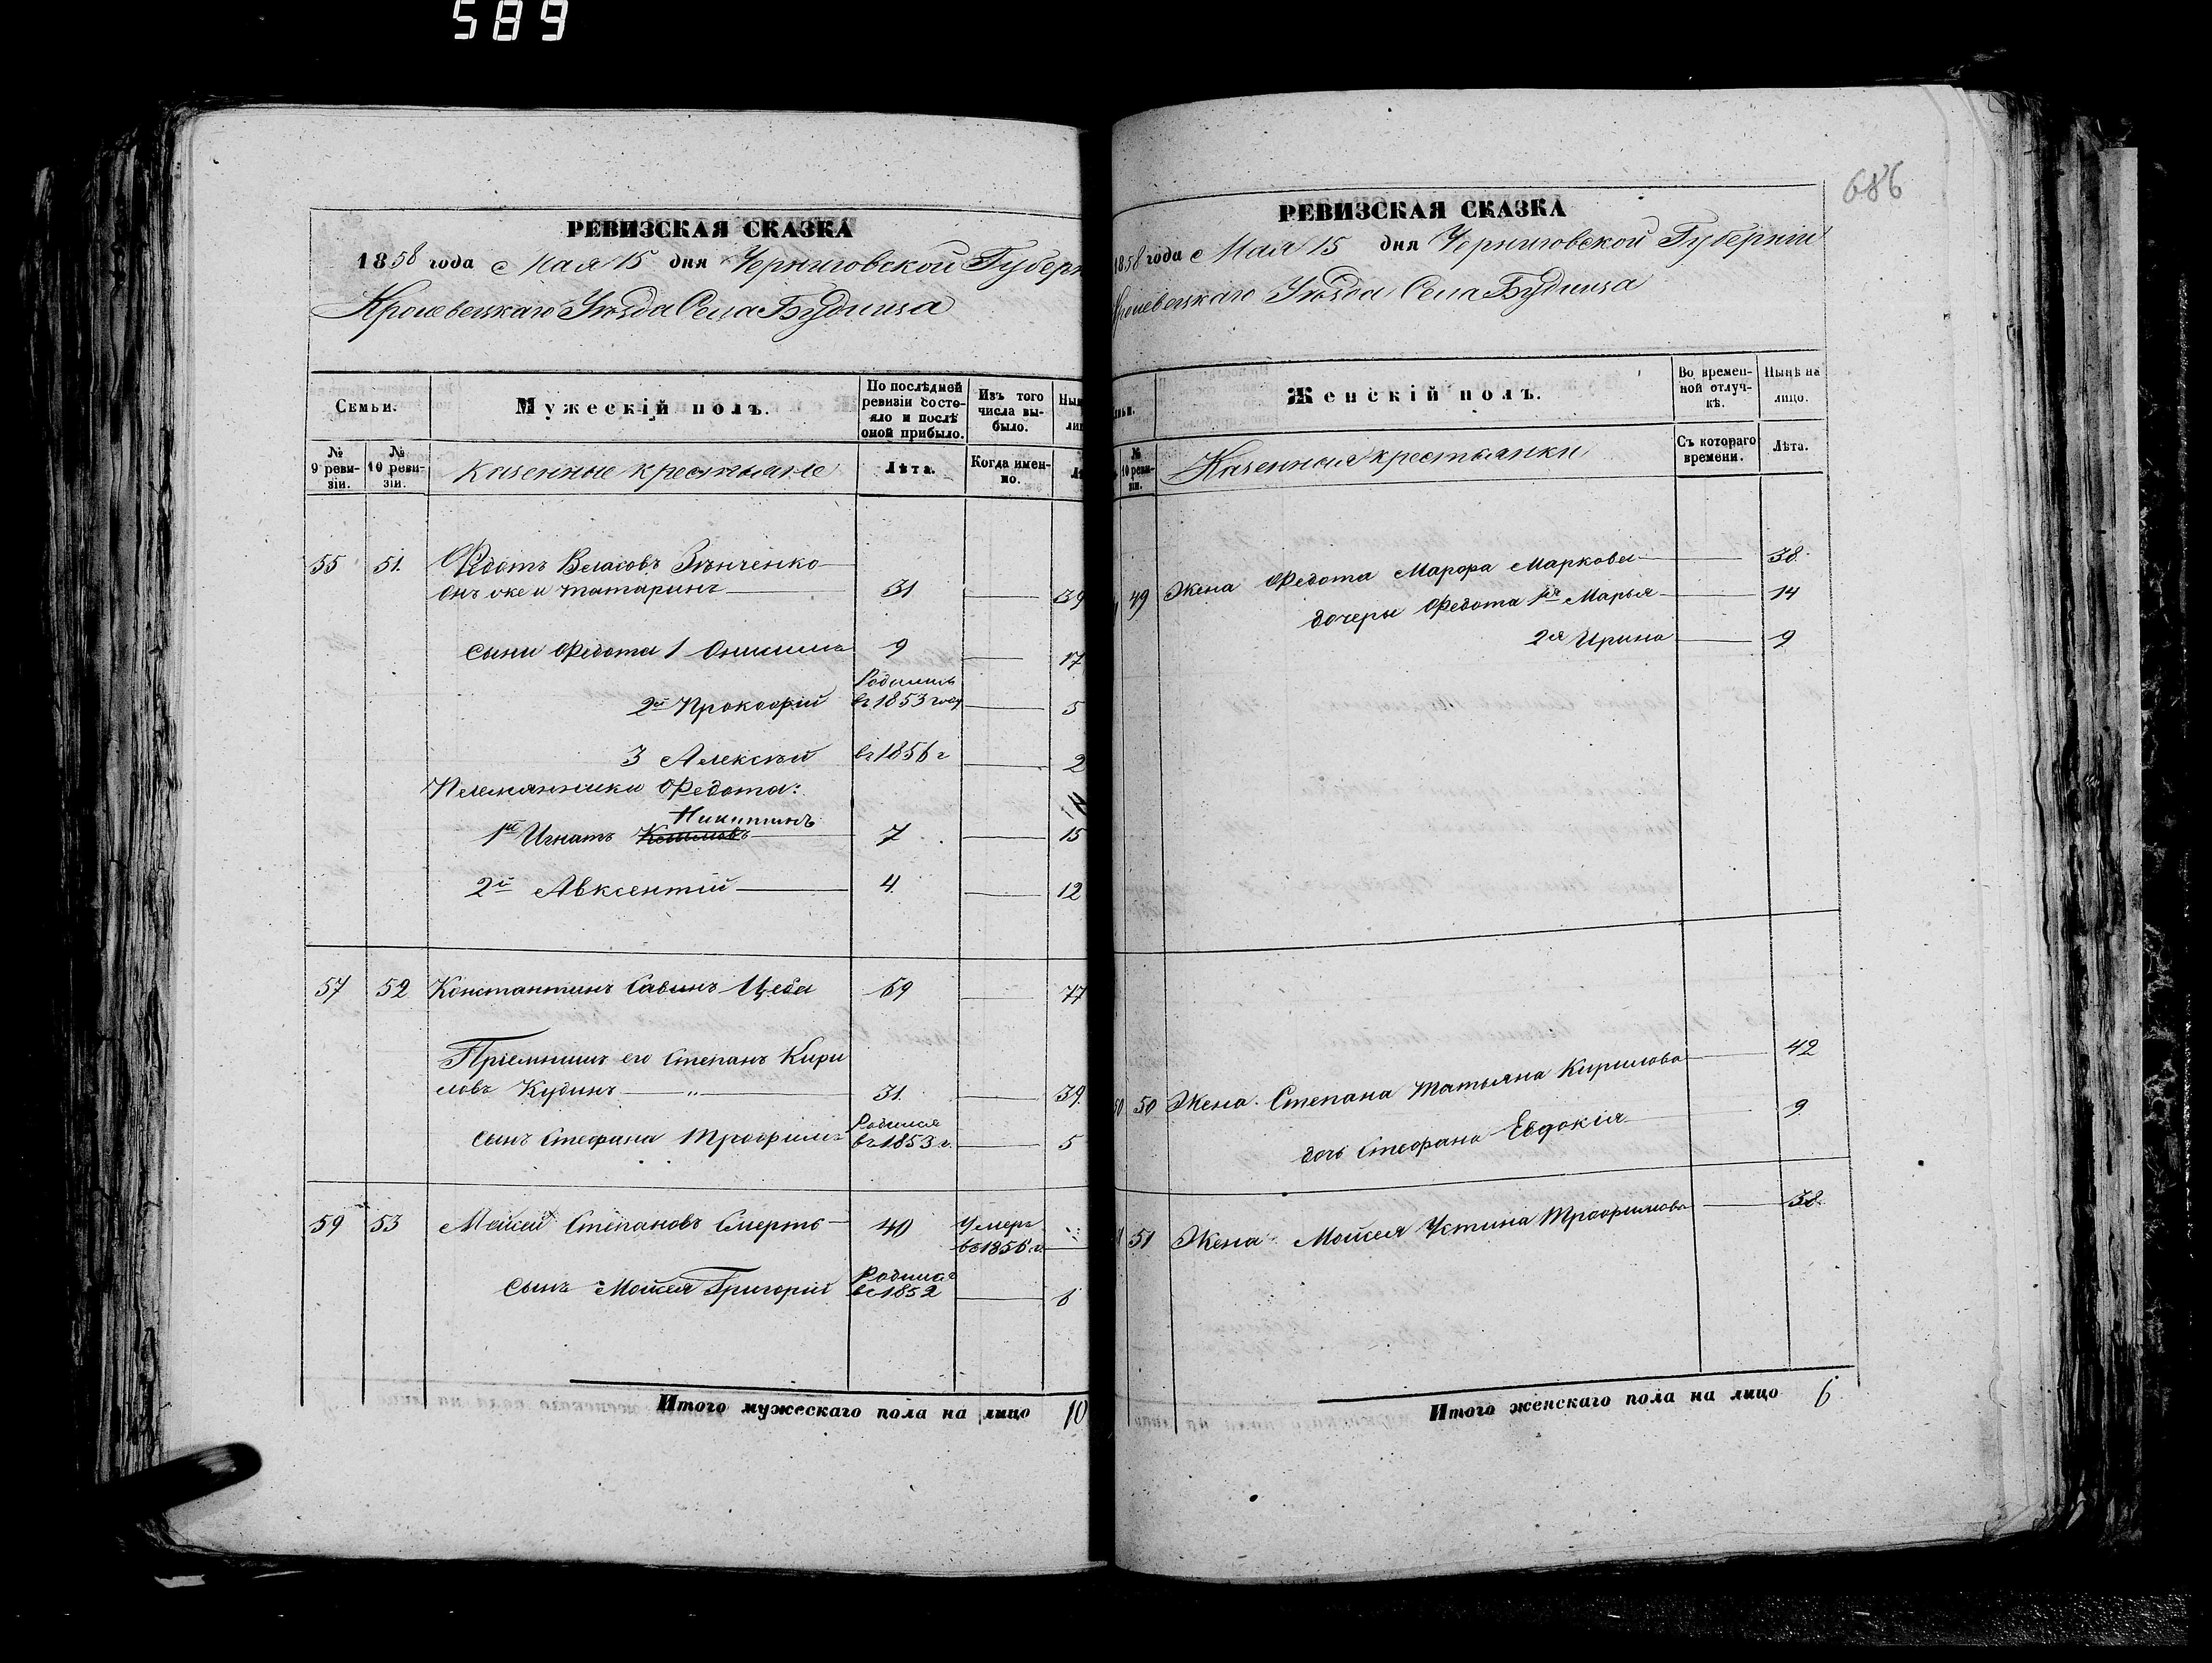 589
РЕВИЗСКАЯ СКАЗКА
1858 года Мая 15 дня Черниговской Губерн
Кролевецкаго Уѣзда Села Будища
Семьи.
Мужескій полъ.
По послѣдней ревизіи состояло и послѣ оной прибыло.
Изъ того числа выбыло.
№ 9 ревизіи.
№ 10 ревизіи.
Казенные крестьяне
Лѣта.
Когда именно.
55 51 Федотъ Власовъ Зѣнченко
онъ же и татаринъ 31 39
сыни Федота 1 Онисимъ 9 17
2й Прокофій Родились въ 1853 году 5
3 Алексѣй въ 1856 г 2
Племянники Федота:
Никитинъ
1й Игнатъ 7 15
2й Авксентій 4 12
57 52 Константинъ Савинъ Цеба 69 77
Пріемышъ его Степанъ Кири
ловъ Кудинъ 31 39
сынъ Стефана Трофимъ Родился въ 1853 г. 5
59 53 Мойсей Степановъ Смерть 40 Умеръ въ 1856 г.
Сынъ Мойсея Григорій Родился въ 1852 6
Итого мужескаго пола на лицо 10
686
РЕВИЗСКАЯ СКАЗКА
1858 года Мая 15 дня Черниговской Губерніи
Кролевецкаго Уѣзда Села Будища
Женскій полъ.
Во временной отлучкѣ.
Нынѣ на лицо.
№ 10 ревизіи.
Казенныя крестьянки
Съ котораго времени.
Лѣта.
49 Жена Федота Марфа Маркова 38
дочеры Федота 1я Марья 14
2я Ирина 9
50 Жена Степана Татьяна Кирилова 42
дочь Стефана Евдокія 9
51 Жена Мойсея Устина Трофимова 38
Итого женскаго пола на лицо 6